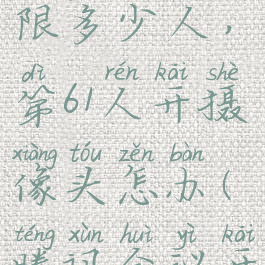 限多少人,
dì rén kāi shè
第61人开摄
xiàng tóu zěn bàn
像头怎办(
téng xùn huì yì kāi
腾讯会议开